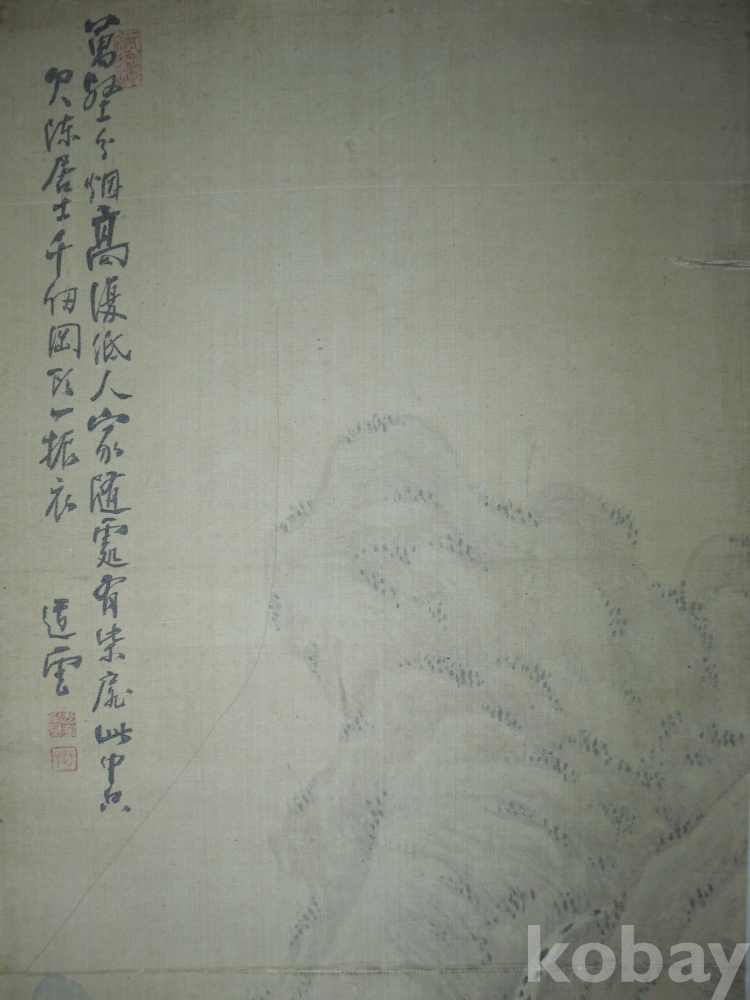 萬壑分烟高復低人家隨處有柴扉此中只
欠陳居士千仞岡頭一振衣 道雲
kobay